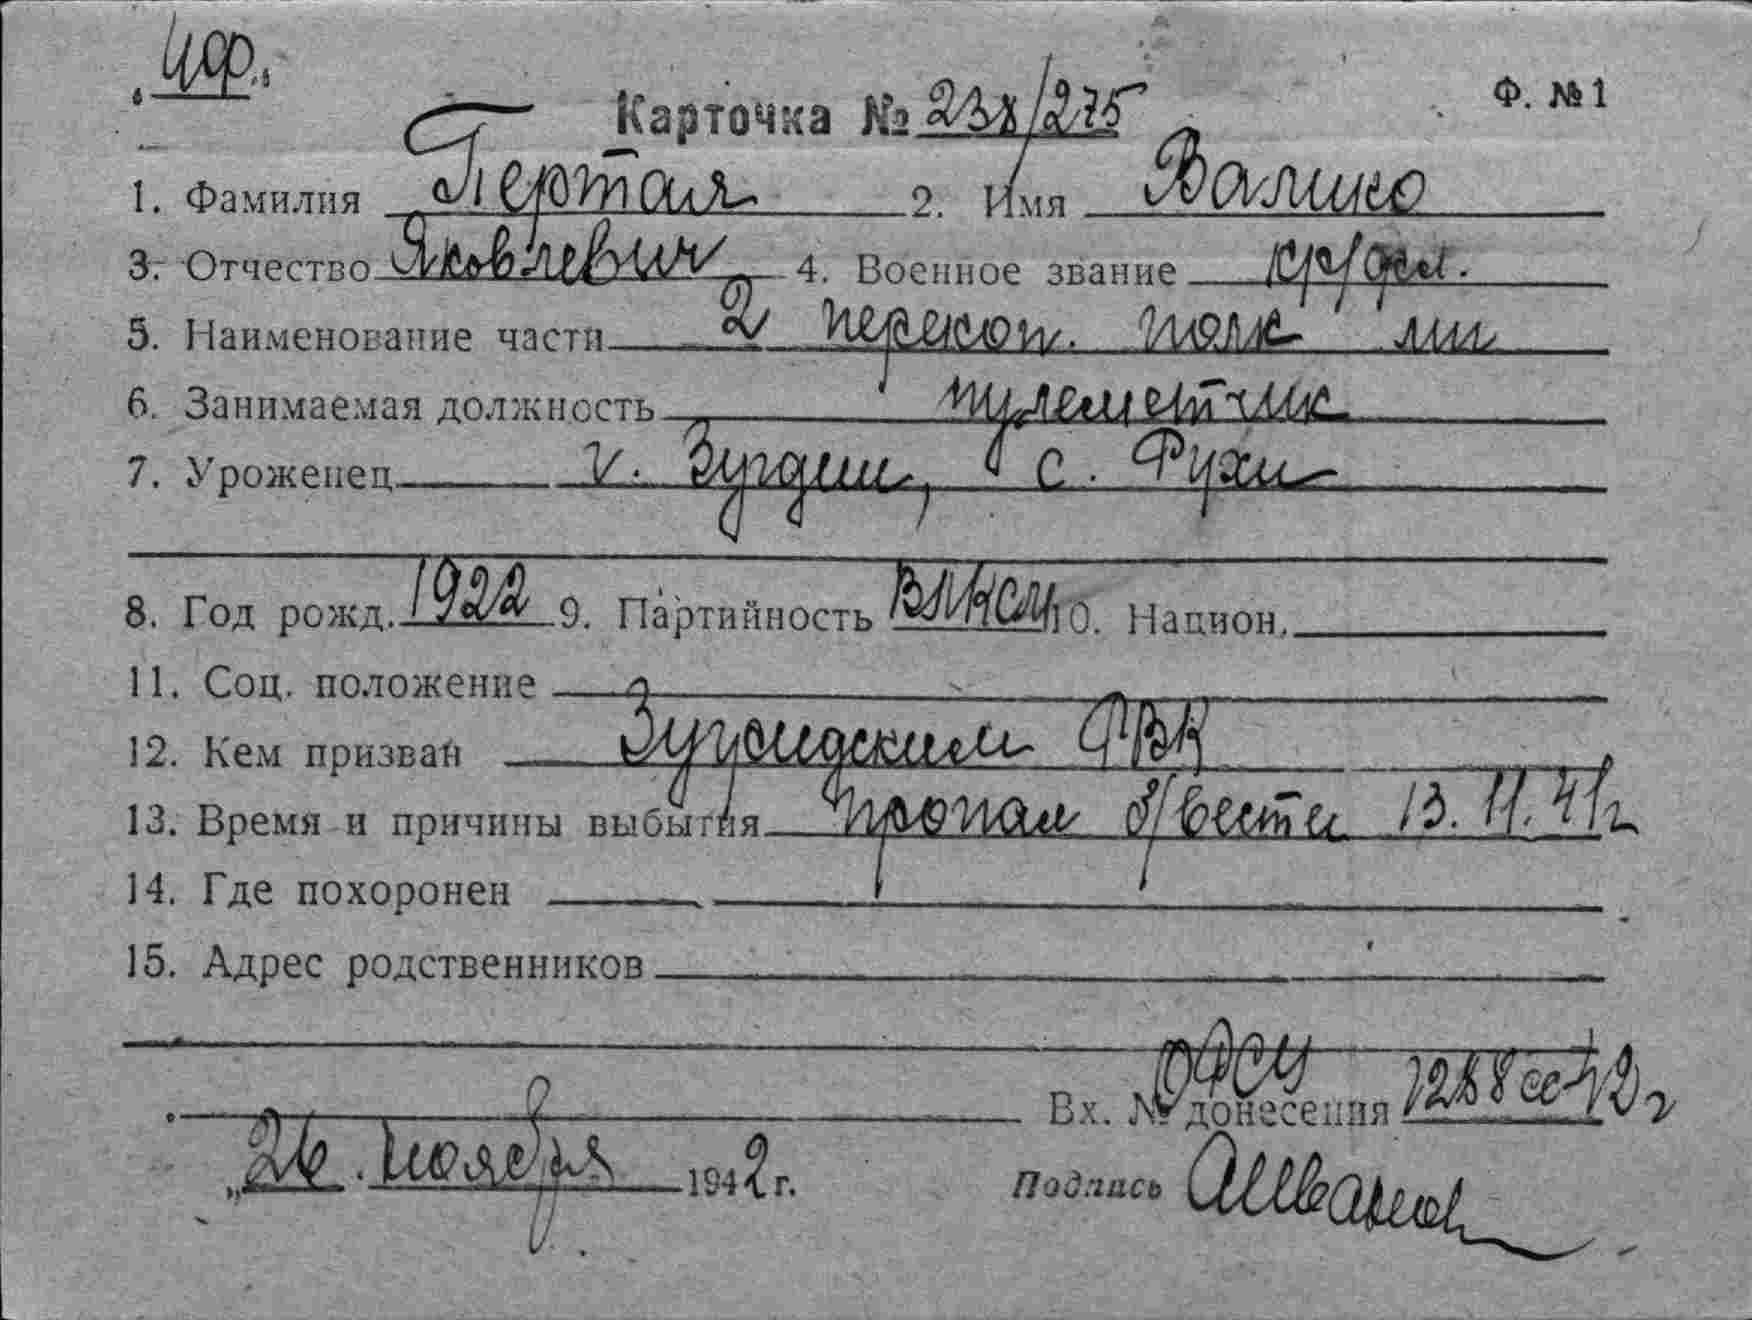 Ф. №1
Карточка № 238/275
1. Фамилия Пертая 2. Имя Валико
3. Отчество Яковлевич 4. Военное звание кр/фл.
5. Наименование части 2 перекоп. полк мп
6. Занимаемая должность пулеметчик
7. Уроженец г. Зугдиди, с. Рухи
8. Год рожд. 1922 9. Партийность ВЛКСМ 10. Национ.
11. Соц. положение
12. Кем призван Зугдидским РВК
13. Время и причины выбытия пропал б/вести 13.11.41г
14. Где похоронен
15. Адрес родственников
Вх. № донесения 1288сс-42г
„26. ноября 1942г. Подпись